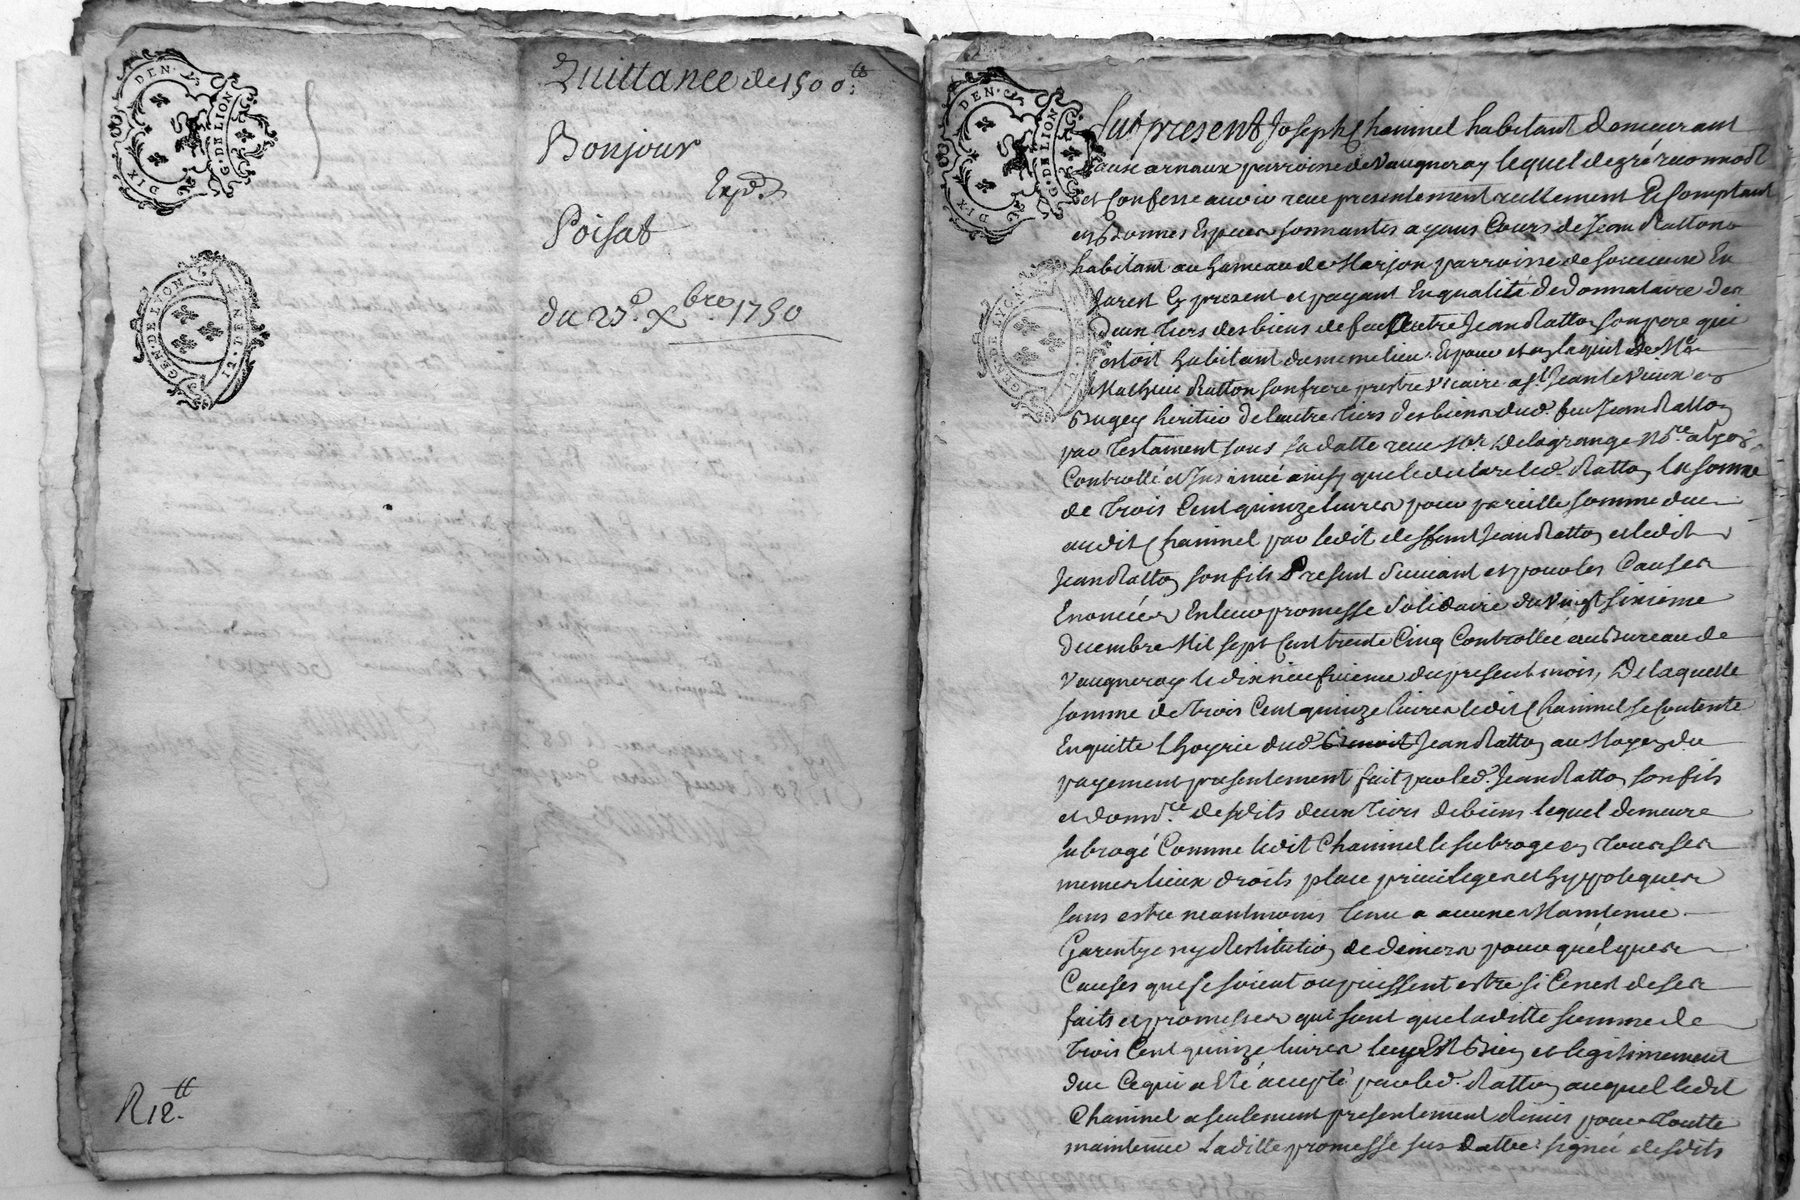 DIX DEN.
G. DE LION
GEN. DE LYON
12. DEN. R.
Quittance de 1500.tt
Bonjour
Expd.
Poisat
du 23e. Xbre 1750
R 12.tt
DIX DEN.
G. DE LION
GEN. DE LYON
12. DEN. R.
fut present Joseph Chaninel habitant demeurant
aux arnaux parroisse de Vaugneray lequel de gré reconnoit
et Confesse avoir reçu presentement reellement et Comptant
en bonnes Especes sonnantes ayans Cours de Jean Ratton
habitant au hameau de Marjon parroisse de soucieux En
Jarest Cy present et payant En qualité de donnataire des
deux tiers des biens de feu autre Jean Ratton son pere qui
estoit habitant du meme lieu. Et pour et en laquit de Mre
Mathieu Ratton son frere prestre vicaire a st. Jean le vieux en
Bugey heritier de l'autre tiers des biens dud. feu Jean Ratton
par testament sous sa datte reçu Mr. Delagrange Nre. a Lyon
Controllé et Insinué ainsy que le declare led. Ratton la somme
de trois Cent quinze livres pour pareille somme due
audit Chaninel par ledit deffunt Jean Ratton et ledit
Jean Ratton son fils Present suivant et pour les Causes
Enoncées En leur promesse solidaire du vingt sixieme
decembre Mil sept Cent trente Cinq Controllée au Bureau de
Vaugneray le dix neufvieme du present mois, De laquelle
somme de trois Cent quinze livres ledit Chaninel se Contente
En quitte l'hoyrie dud. Benoit Jean Ratton au Moyen du
payement presentement fait par led. Jean Ratton son fils
et donnre. desdits deux tiers de biens lequel demeure
subrogé Comme ledit Chaninel le subroge en tous ses
memes lieux droits place privileges et hypoteques
sans estre neantmoins tenu a aucune Maintenue
Garentye ny Restitution de deniers pour quelques
Causes que se soient ou puissent estre si Ce n'est de ses
faits et promesses qui sont que laditte somme de
trois Cent quinze livres luy Est Bien et legitimement
due Ce qui a Eté accepté par led. Ratton auquel ledit
Chaninel a seulement presentement Remis pour toutte
maintenue Laditte promesse sus dattée signée desdits